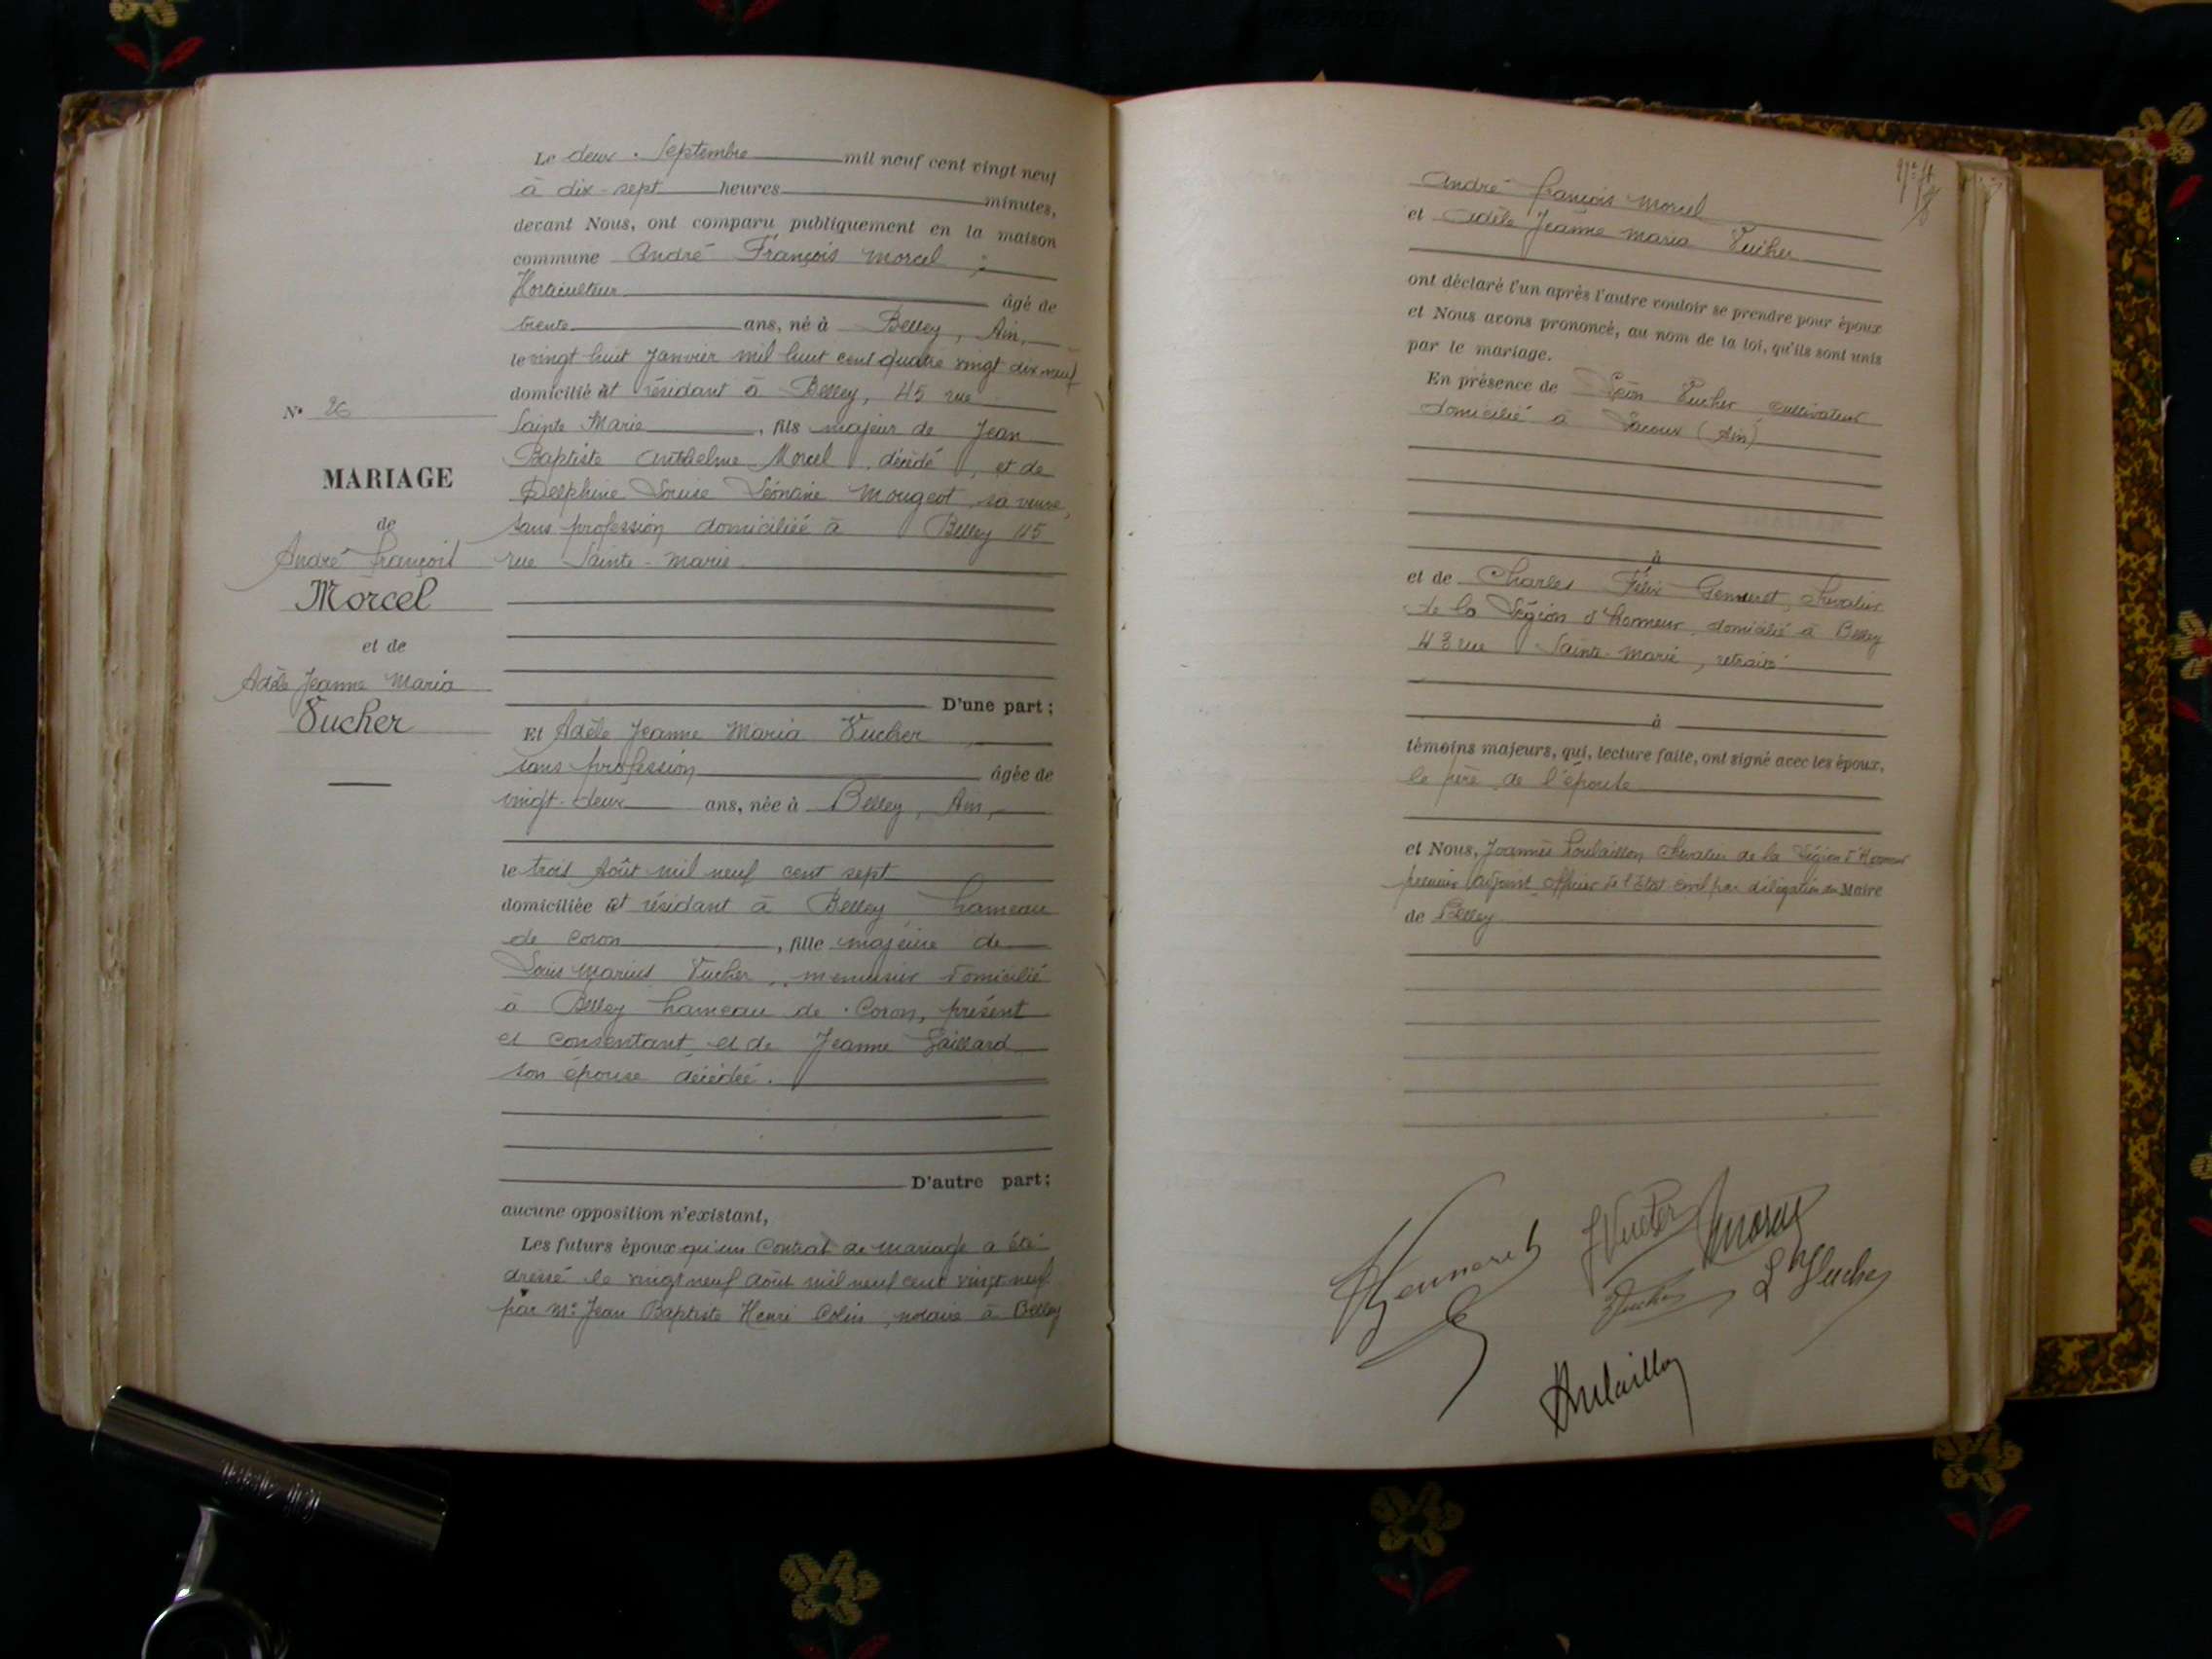 Le deux Septembre mil neuf cent vingt neuf
à dix-sept heures minutes,
devant Nous, ont comparu publiquement en la maison
commune André François Morcel,
Horticulteur âgé de
trente ans, né à Belley, Ain,
le vingt huit Janvier mil huit cent quatre vingt dix neuf
domicilié et résidant à Belley, 45 rue
Sainte Marie, fils majeur de Jean
Baptiste Anthelme Morcel, décédé, et de
Delphine Louise Léontine Mougeot, sa veuve,
sans profession domiciliée à Belley 45
rue Sainte-Marie
D'une part;
N° 26
MARIAGE
de
André François
Morcel
et de
Adèle Jeanne Maria
Vucher
Et Adèle Jeanne Maria Vucher
sans profession âgée de
vingt-deux ans, née à Belley, Ain,
le trois Août mil neuf cent sept
domiciliée et résidant à Belley hameau
de Coron, fille majeure de
Louis Marius Vucher, menuisier domicilié
à Belley hameau de Coron, présent
et consentant et de Jeanne Gaillard
son épouse décédée.
D'autre part;
aucune opposition n'existant,
Les futurs époux qu'un Contrat de mariage a été
dressé le vingt neuf Août mil neuf cent vingt neuf
par Me Jean Baptiste Henri Colin, notaire à Belley
André François Morcel
et Adèle Jeanne Maria Vucher
ont déclaré l'un après l'autre vouloir se prendre pour époux
et Nous avons prononcé, au nom de la loi, qu'ils sont unis
par le mariage.
En présence de Léon Vucher cultivateur
domicilié à Lacoux (Ain)
à
et de Charles Félix Gemeret, chevalier
de la Légion d'honneur, domicilié à Belley
43 rue Sainte-Marie, retraité
à
témoins majeurs, qui, lecture faite, ont signé avec les époux,
le père de l'épouse
et Nous, Joannès chevalier de la Légion d'Honneur
premier adjoint officier de l'état civil par délégation du Maire
de Belley
J Vucher
Morcel
Vucher
L Vucher